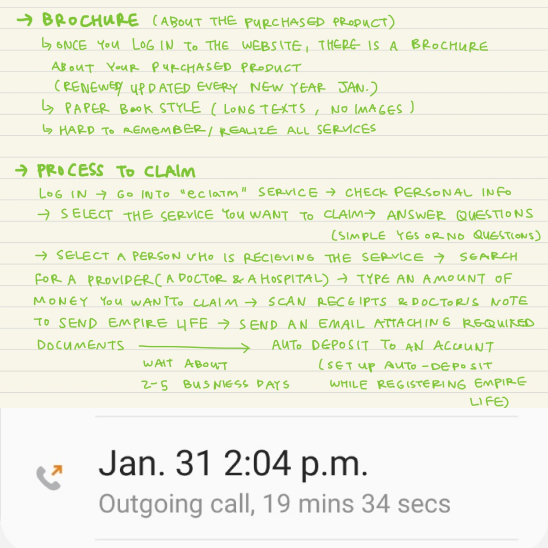 → BROCHURE (ABOUT THE PURCHASED PRODUCT)
↳ ONCE YOU LOG IN TO THE WEBSITE, THERE IS A BROCHURE
ABOUT YOUR PURCHASED PRODUCT
(RENEWED/ UPDATED EVERY NEW YEAR JAN.)
↳ PAPER BOOK STYLE (LONG TEXTS, NO IMAGES)
↳ HARD TO REMEMBER/ REALIZE ALL SERVICES
→ PROCESS TO CLAIM
LOG IN → GO INTO "eclaim" SERVICE → CHECK PERSONAL INFO
→ SELECT THE SERVICE YOU WANT TO CLAIM → ANSWER QUESTIONS
(SIMPLE YES OR NO QUESTIONS)
→ SELECT A PERSON WHO IS RECIEVING THE SERVICE → SEARCH
FOR A PROVIDER (A DOCTOR & A HOSPITAL) → TYPE AN AMOUNT OF
MONEY YOU WANT TO CLAIM → SCAN RECEIPTS & DOCTOR'S NOTE
TO SEND EMPIRE LIFE → SEND AN EMAIL ATTACHING REQUIRED
DOCUMENTS → AUTO DEPOSIT TO AN ACCOUNT
WAIT ABOUT (SET UP AUTO-DEPOSIT
2-5 BUSNIESS DAYS WHILE REGISTERING EMPIRE
LIFE)
Jan. 31 2:04 p.m.
Outgoing call, 19 mins 34 secs